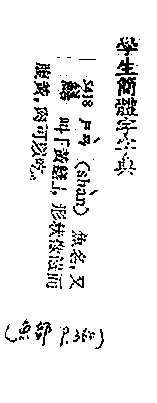 學生簡體字字典
5418 ㄕㄢˋ (shàn) 魚名,又
叫「黃鱔」,形狀像蛇而
腹黃,肉可以吃。
(魚部 P.360)